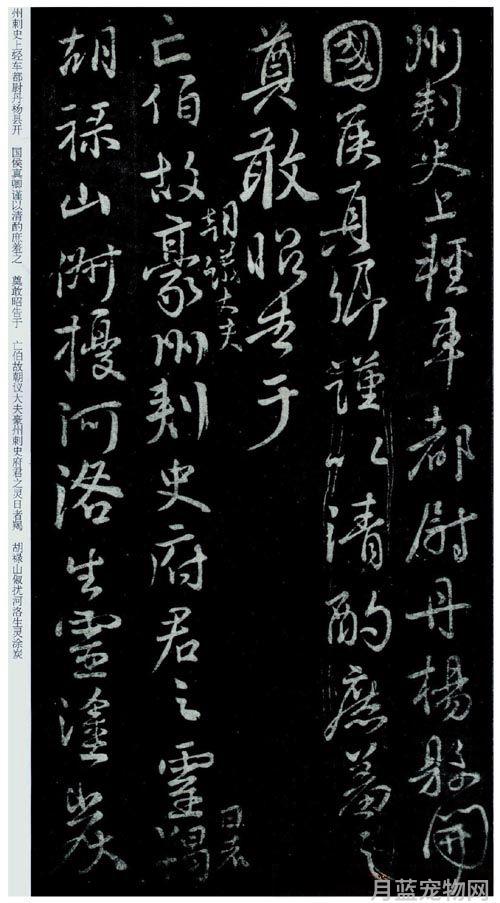 州刺史上輕車都尉丹楊縣開
國侯真卿謹以清酌庶羞之
奠敢昭告于
朝議大夫
亡伯故豪州刺史府君之靈羯
日者
胡祿山俶擾河洛生靈塗炭
州刺史上轻车都尉丹杨县开 国侯真卿谨以清酌庶羞之 奠敢昭告于 亡伯故朝议大夫豪州刺史府君之灵日者羯 胡禄山俶扰河洛生灵涂炭
月蓝宠物网